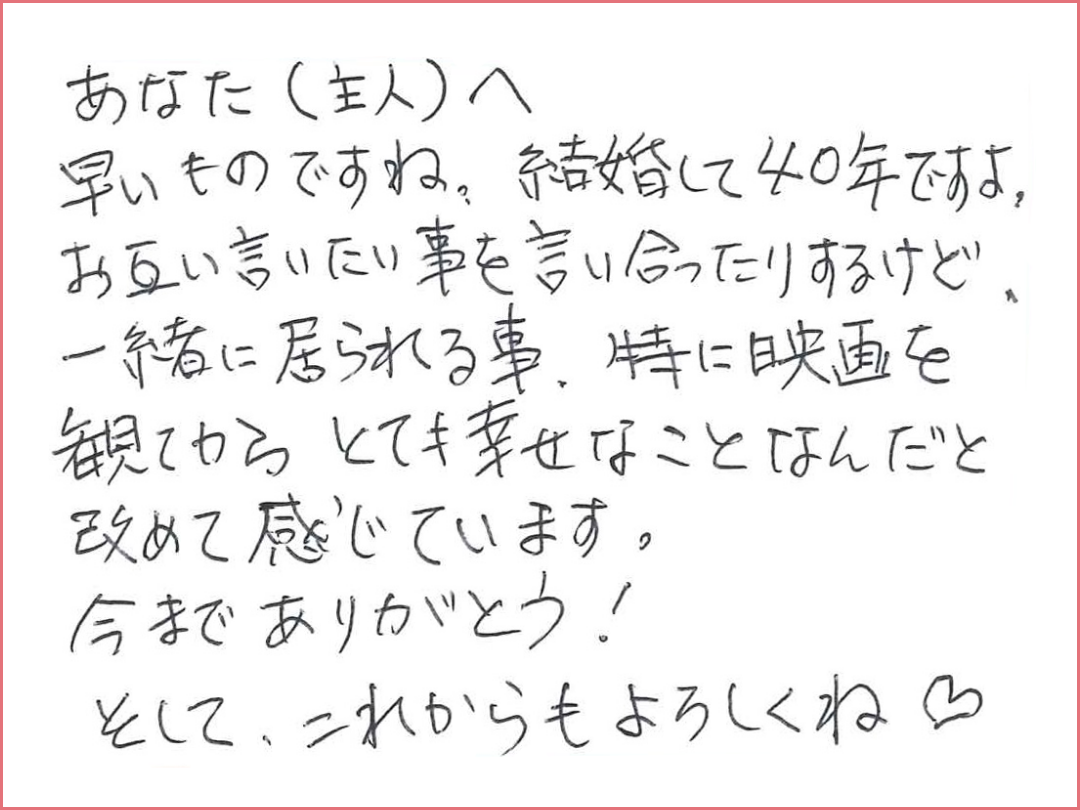 あなた（主人）へ
早いものですね。結婚して40年ですよ。
お互い言いたい事を言い合ったりするけど、
一緒に居られる事、特に映画を
観てから とても幸せなことなんだと
改めて感じています。
今までありがとう！
そして、これからもよろしくね♡